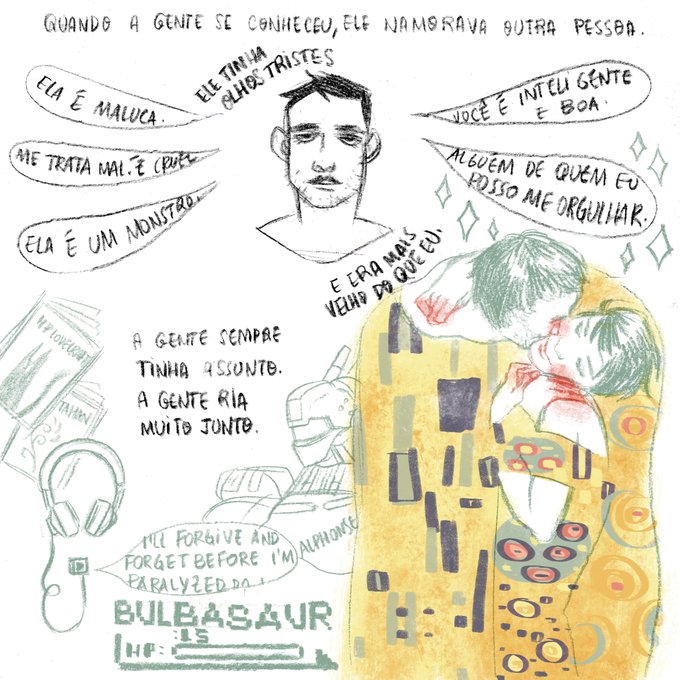 QUANDO A GENTE SE CONHECEU, ELE NAMORAVA OUTRA PESSOA.
ELE TINHA
OLHOS TRISTES
ELA É MALUCA.
ME TRATA MAL. É CRUEL
ELA É UM MONSTRO.
VOCÊ É INTELIGENTE
E BOA.
ALGUÉM DE QUEM EU
POSSO ME ORGULHAR.
E ERA MAIS
VELHO DO QUE EU.
A GENTE SEMPRE
TINHA ASSUNTO.
A GENTE RIA
MUITO JUNTO.
HP LOVECRAFT
I'LL FORGIVE AND
FORGET BEFORE I'M
PARALYZED DO I
ALPHONSE
BULBASAUR
:L5
HP: